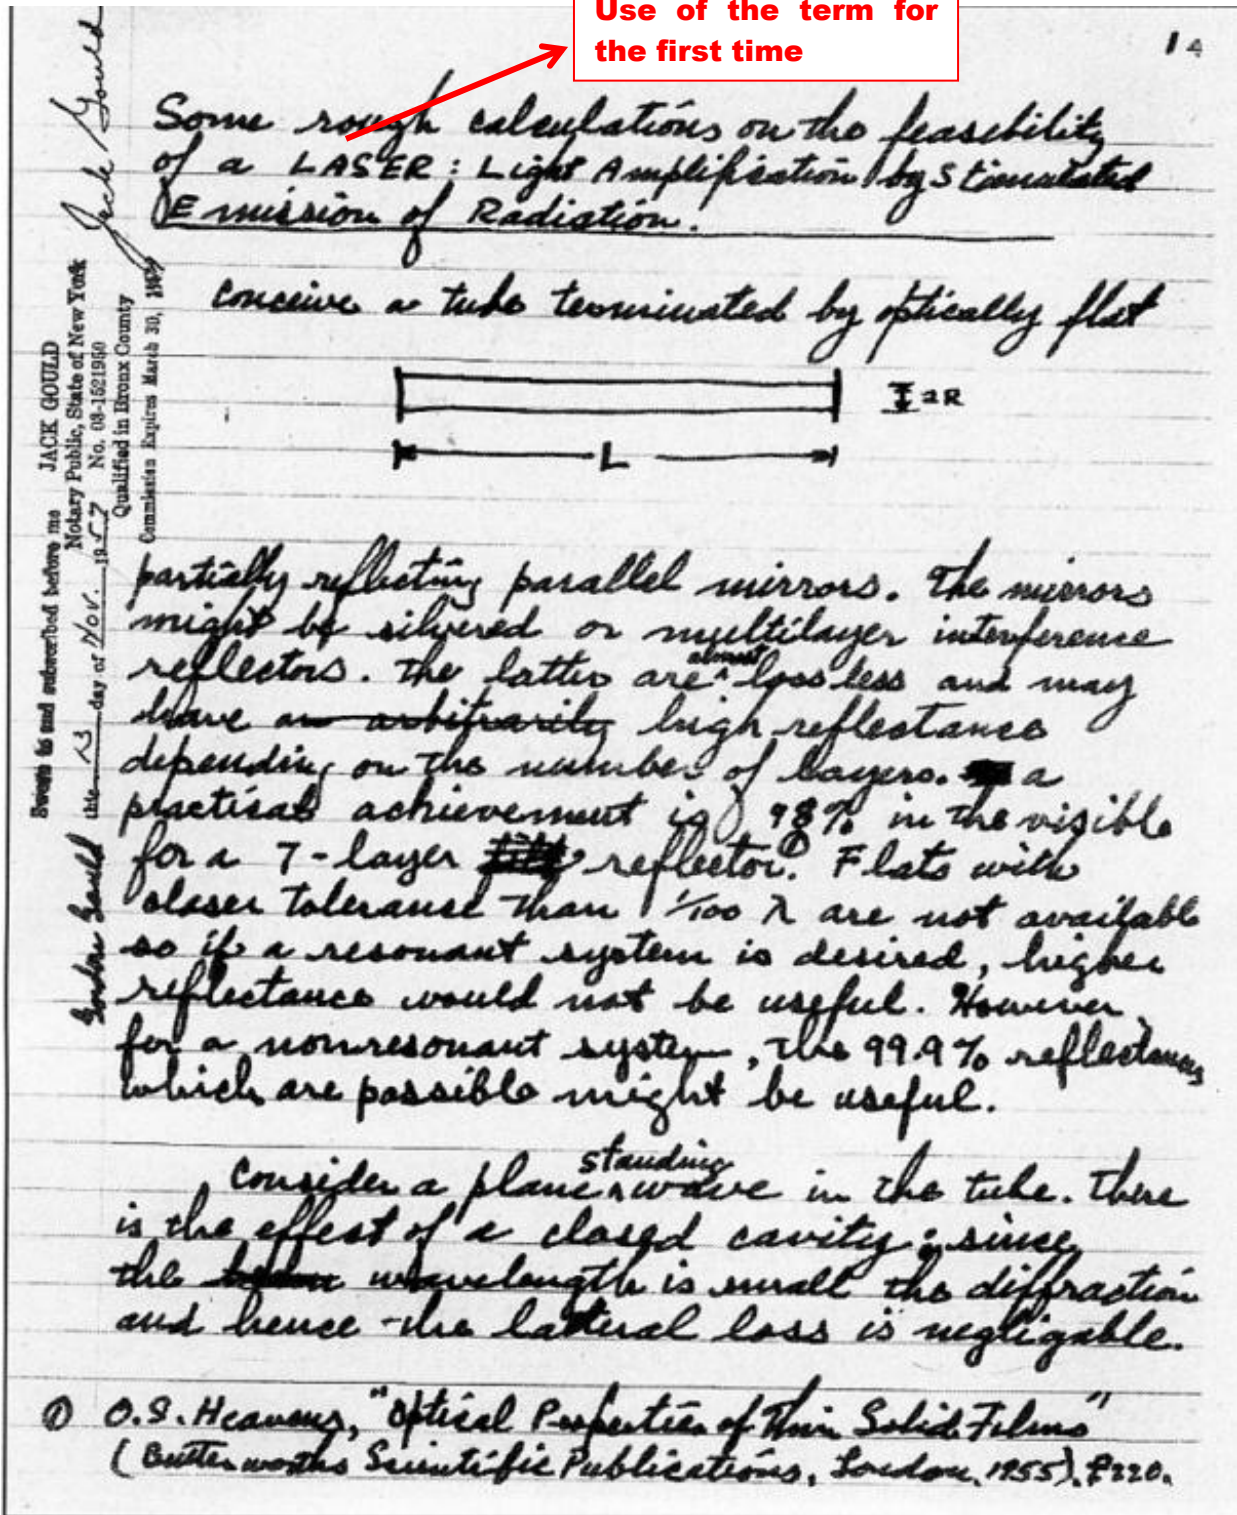 Use of the term for
the first time
1
Some rough calculations on the feasibility
of a LASER: Light Amplification by Stimulated
Emission of Radiation.
conceive a tube terminated by optically flat
L
partially reflecting parallel mirrors. The mirrors
might be silvered or multilayer interference
reflectors. The latter are almost lossless and may
have an arbitrarily high reflectance
depending on the number of layers. a
practical achievement is 98% in the visible
for a 7-layer reflector.① Flats with
closer tolerance than 1/100 λ are not available
so if a resonant system is desired, higher
reflectance would not be useful. However,
for a nonresonant system, the 99.9% reflectances
which are possible might be useful.
Consider a plane standing wave in the tube. There
is the effect of a closed cavity; since
the wavelength is small the diffraction
and hence the lateral loss is negligable.
① O.S. Heavens, "Optical Properties of Thin Solid Films"
(Butterworths Scientific Publications, London, 1955), P220.
Jack Gould
Sworn to and subscribed before me
this 13 day of Nov. 1957
JACK GOULD
Notary Public, State of New York
No. 03-1521950
Qualified in Bronx County
Commission Expires March 30, 
Gordon Gould